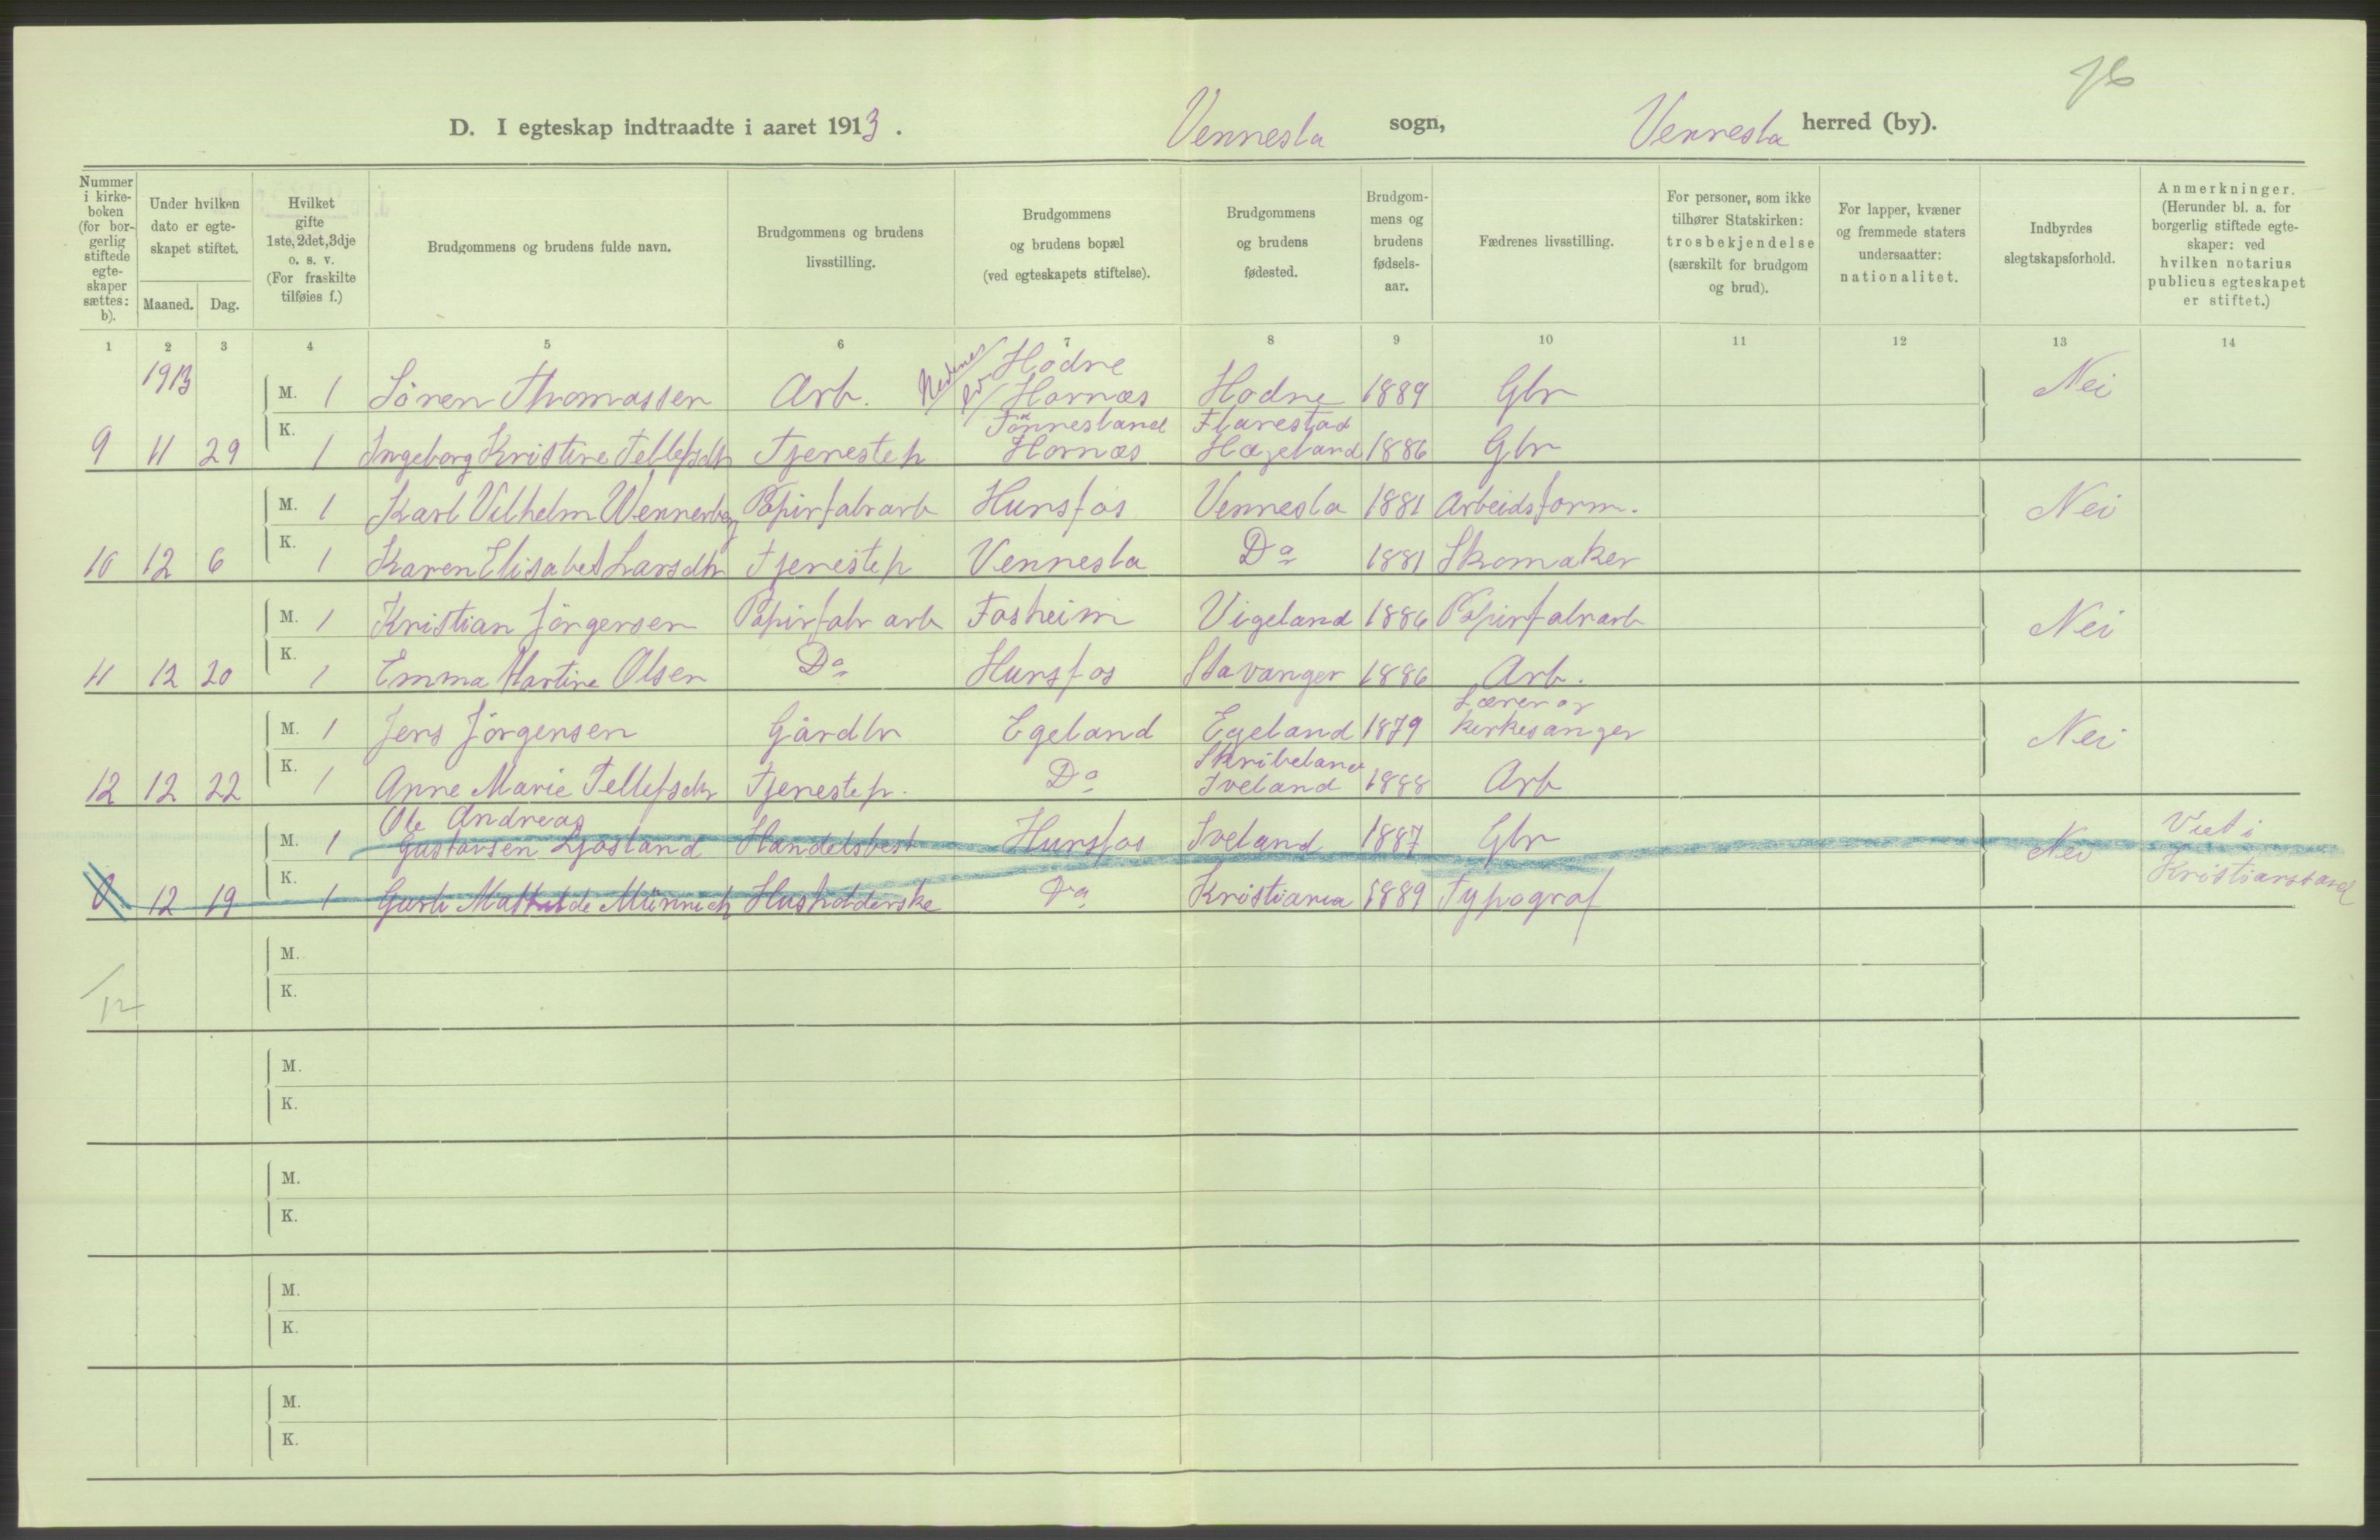 76
D. I egteskap indtraadte i aaret 1913. Vennesla sogn, Vennesla herred (by).
Nummer i kirkeboken (for borgerlig stiftede egteskaper sættes: b).
Under hvilken dato er egteskapet stiftet.
Maaned. Dag.
Hvilket gifte 1ste, 2det, 3dje o. s. v. (For fraskilte tilføies f.)
Brudgommens og brudens fulde navn.
Brudgommens og brudens livsstilling.
Brudgommens og brudens bopæl (ved egteskapets stiftelse).
Brudgommens og brudens fødested.
Brudgommens og brudens fødselsaar.
Fædrenes livsstilling.
For personer, som ikke tilhører Statskirken: trosbekjendelse (særskilt for brudgom og brud).
For lapper, kvæner og fremmede staters undersaatter: nationalitet.
Indbyrdes slegtskapsforhold.
Anmerkninger. (Herunder bl. a. for borgerlig stiftede egteskaper: ved hvilken notarius publicus egteskapet er stiftet.)
1 2 3 4 5 6 7 8 9 10 11 12 13 14
1913 M. 1 Sören Thomassen Arb. Hodne Hornæs Hodne 1889 Gbr Nei
9 11 29 K. 1 Ingeborg Kristine Tellefsdtr Tjenestep Tönnesland Hornæs Flarestad Hægeland 1886 Gbr
M. 1 Karl Vilhelm Wennerberg Papirfabrarb Hunsfos Vennesla 1881 Arbeidsform. Nei
10 12 6 K. 1 Karen Elisabet Larsdtr Tjenestep Vennesla Do 1881 Skomaker
M. 1 Kristian Jörgensen Papirfabr arb Fosheim Vigeland 1886 Papirfabrarb Nei
11 12 20 K. 1 Emma Martine Olsen Do Hunsfos Stavanger 1886 Arb.
M. 1 Jens Jörgensen Gårdbr Egeland Egeland 1879 Lærer og kirkesanger Nei
12 12 22 K. 1 Anne Marie Tellefsdtr Tjenestep. Do Skribeland Iveland 1888 Arb
M. 1 Ole Andreas Gustavsen Ljosland Handelsbest Hunsfos Iveland 1887 Gbr Nei Viet i Kristianssand
0 12 19 K. 1 Mathilde Münnich Husholderske Do Kristiania 1889 Typograf
M.
K.
12
M.
K.
M.
K.
M.
K.
M.
K.